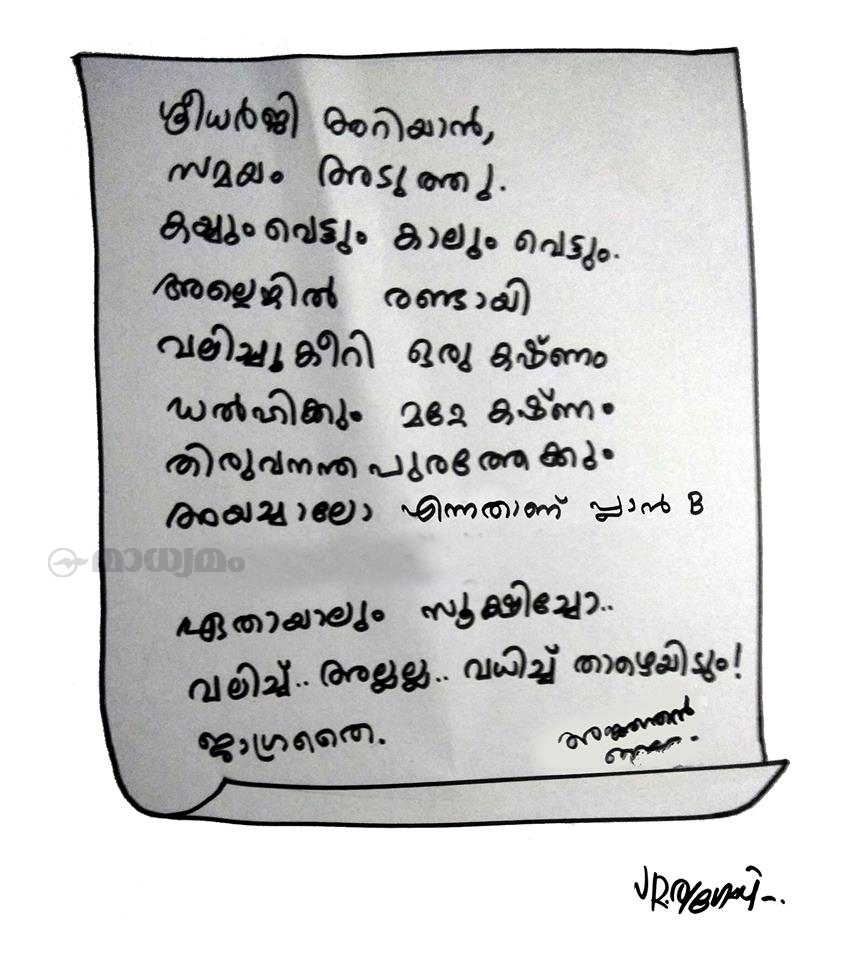 ശ്രീധർജി അറിയാൻ,
സമയം അടുത്തു.
കയ്യും വെട്ടും കാലും വെട്ടും.
അല്ലെങ്കിൽ രണ്ടായി
വലിച്ചു കീറി ഒരു കഷ്ണം
ഡൽഹിക്കും മറ്റേ കഷ്ണം
തിരുവനന്തപുരത്തേക്കും
അയച്ചാലോ എന്നതാണ് പ്ലാൻ B
മാധ്യമം
ഏതായാലും സൂക്ഷിച്ചോ..
വലിച്ച്.. അല്ലല്ല.. വധിച്ച് താഴെയിടും!
ജാഗ്രതൈ.